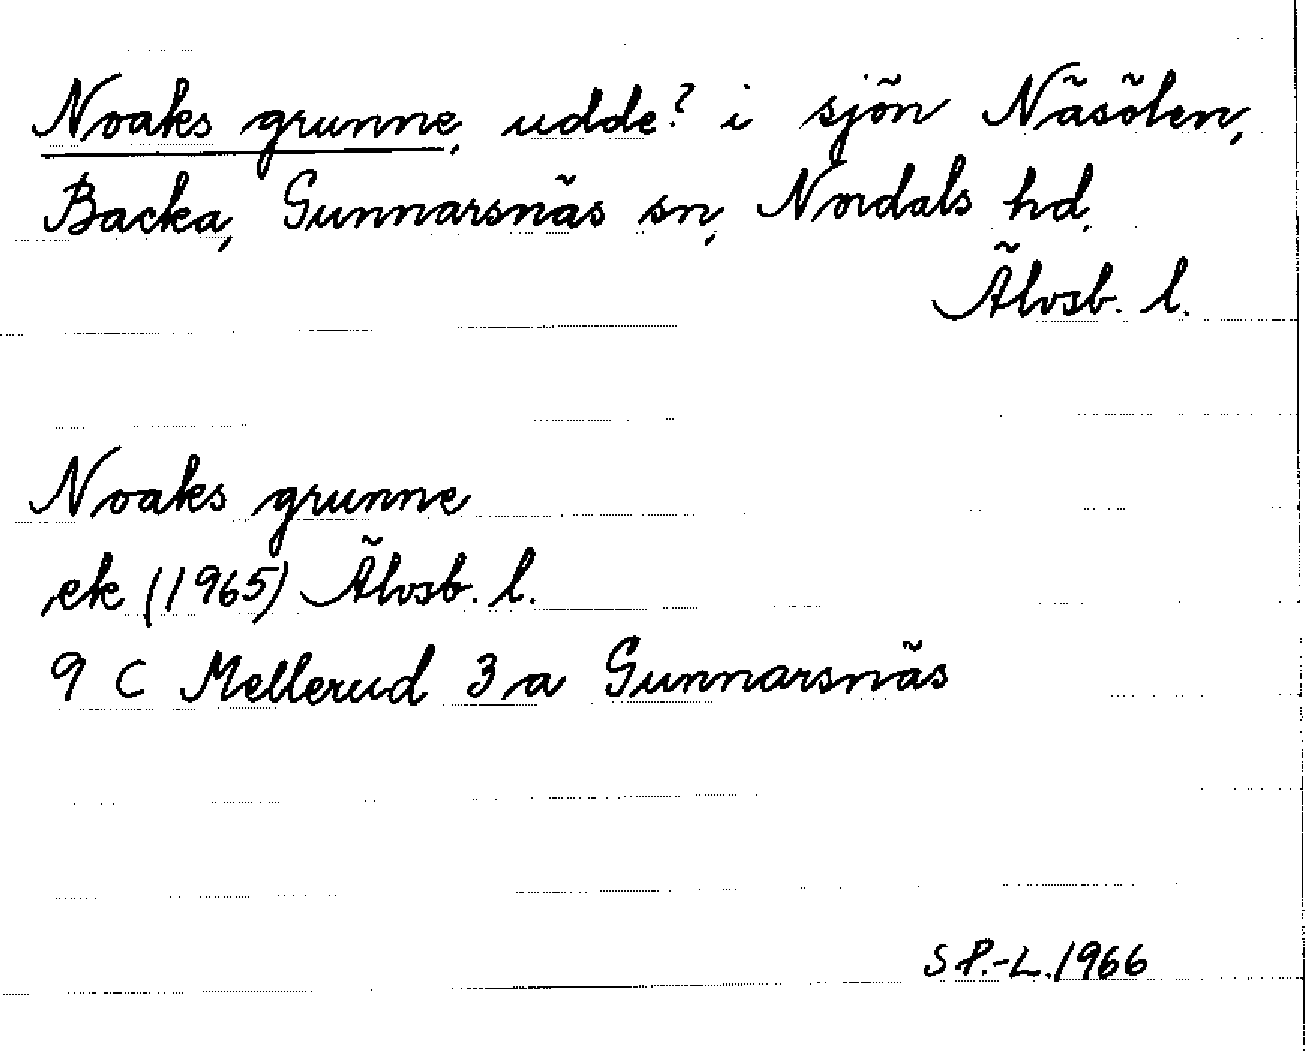 Noaks grunne, udde? i sjön Näsölen,
Backa, Gunnarsnäs sn, Nordals hd,
Älvsb. l.
Noaks grunne
ek (1965) Älvsb. l.
9 C Mellerud 3 a Gunnarsnäs
S P.-L. 1966